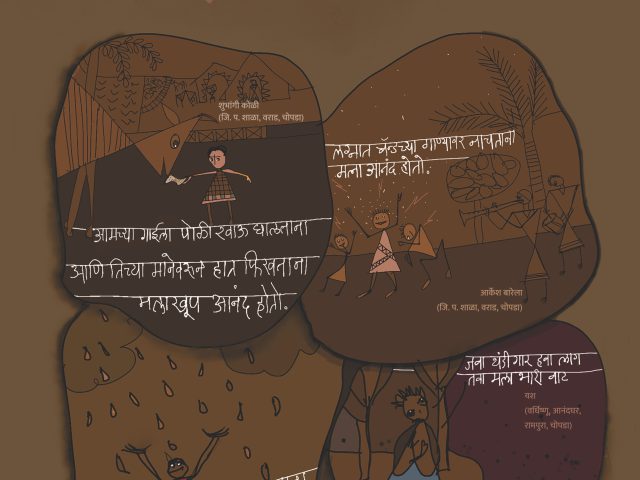 शुभांगी कोळी
(जि. प. शाळा, वराड, चोपडा)
आमच्या गाईला पोळी खाऊ घालताना
आणि तिच्या मानेवरून हात फिरवताना
मला खूप आनंद होतो.
लग्नात बॅन्डच्या गाण्यावर नाचताना
मला आनंद होतो.
आकेश बारेला
(जि. प. शाळा, वराड, चोपडा)
जवा थंडीगार हवा लाग
तवा मला भारी वाट
यश
(वर्धिष्णू, आनंदघर,
रामपुरा, चोपडा)